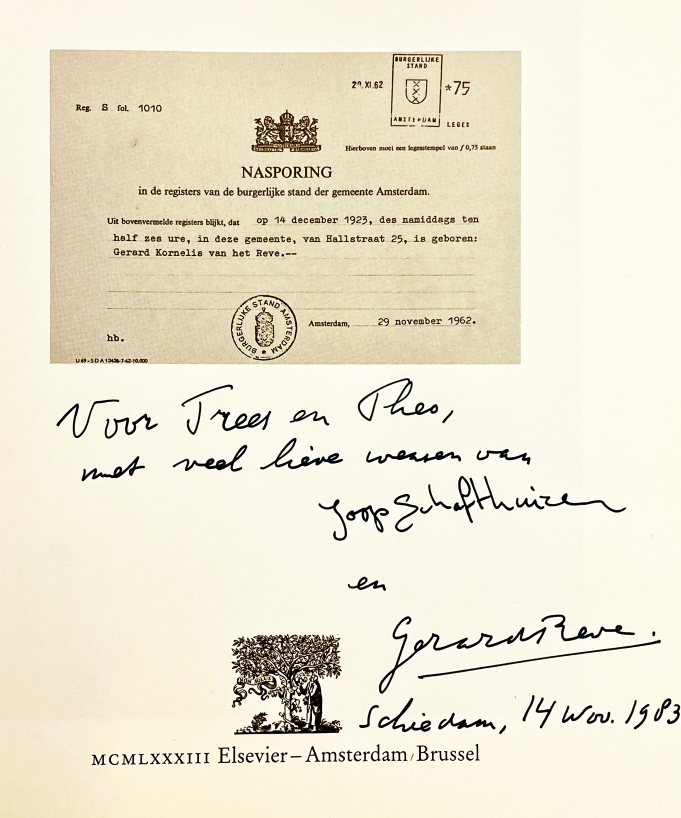 BURGERLIJKE
STAND
29.XI.62
*75
AMSTERDAM
LEGES
Reg. S fol. 1010
Hierboven moet een legesstempel van ƒ 0,75 staan
NASPORING
in de registers van de burgerlijke stand der gemeente Amsterdam.
Uit bovenvermelde registers blijkt, dat op 14 december 1923, des namiddags ten
half zes ure, in deze gemeente, van Hallstraat 25, is geboren:
Gerard Kornelis van het Reve.--
BURGERLIJKE STAND AMSTERDAM
Amsterdam, 29 november 1962.
hb.
Voor Trees en Theo,
met veel lieve wensen van
Joop Schafthuizen
en
Gerard Reve.
Schiedam, 14 Nov. 1983
MCMLXXXIII Elsevier–Amsterdam/Brussel